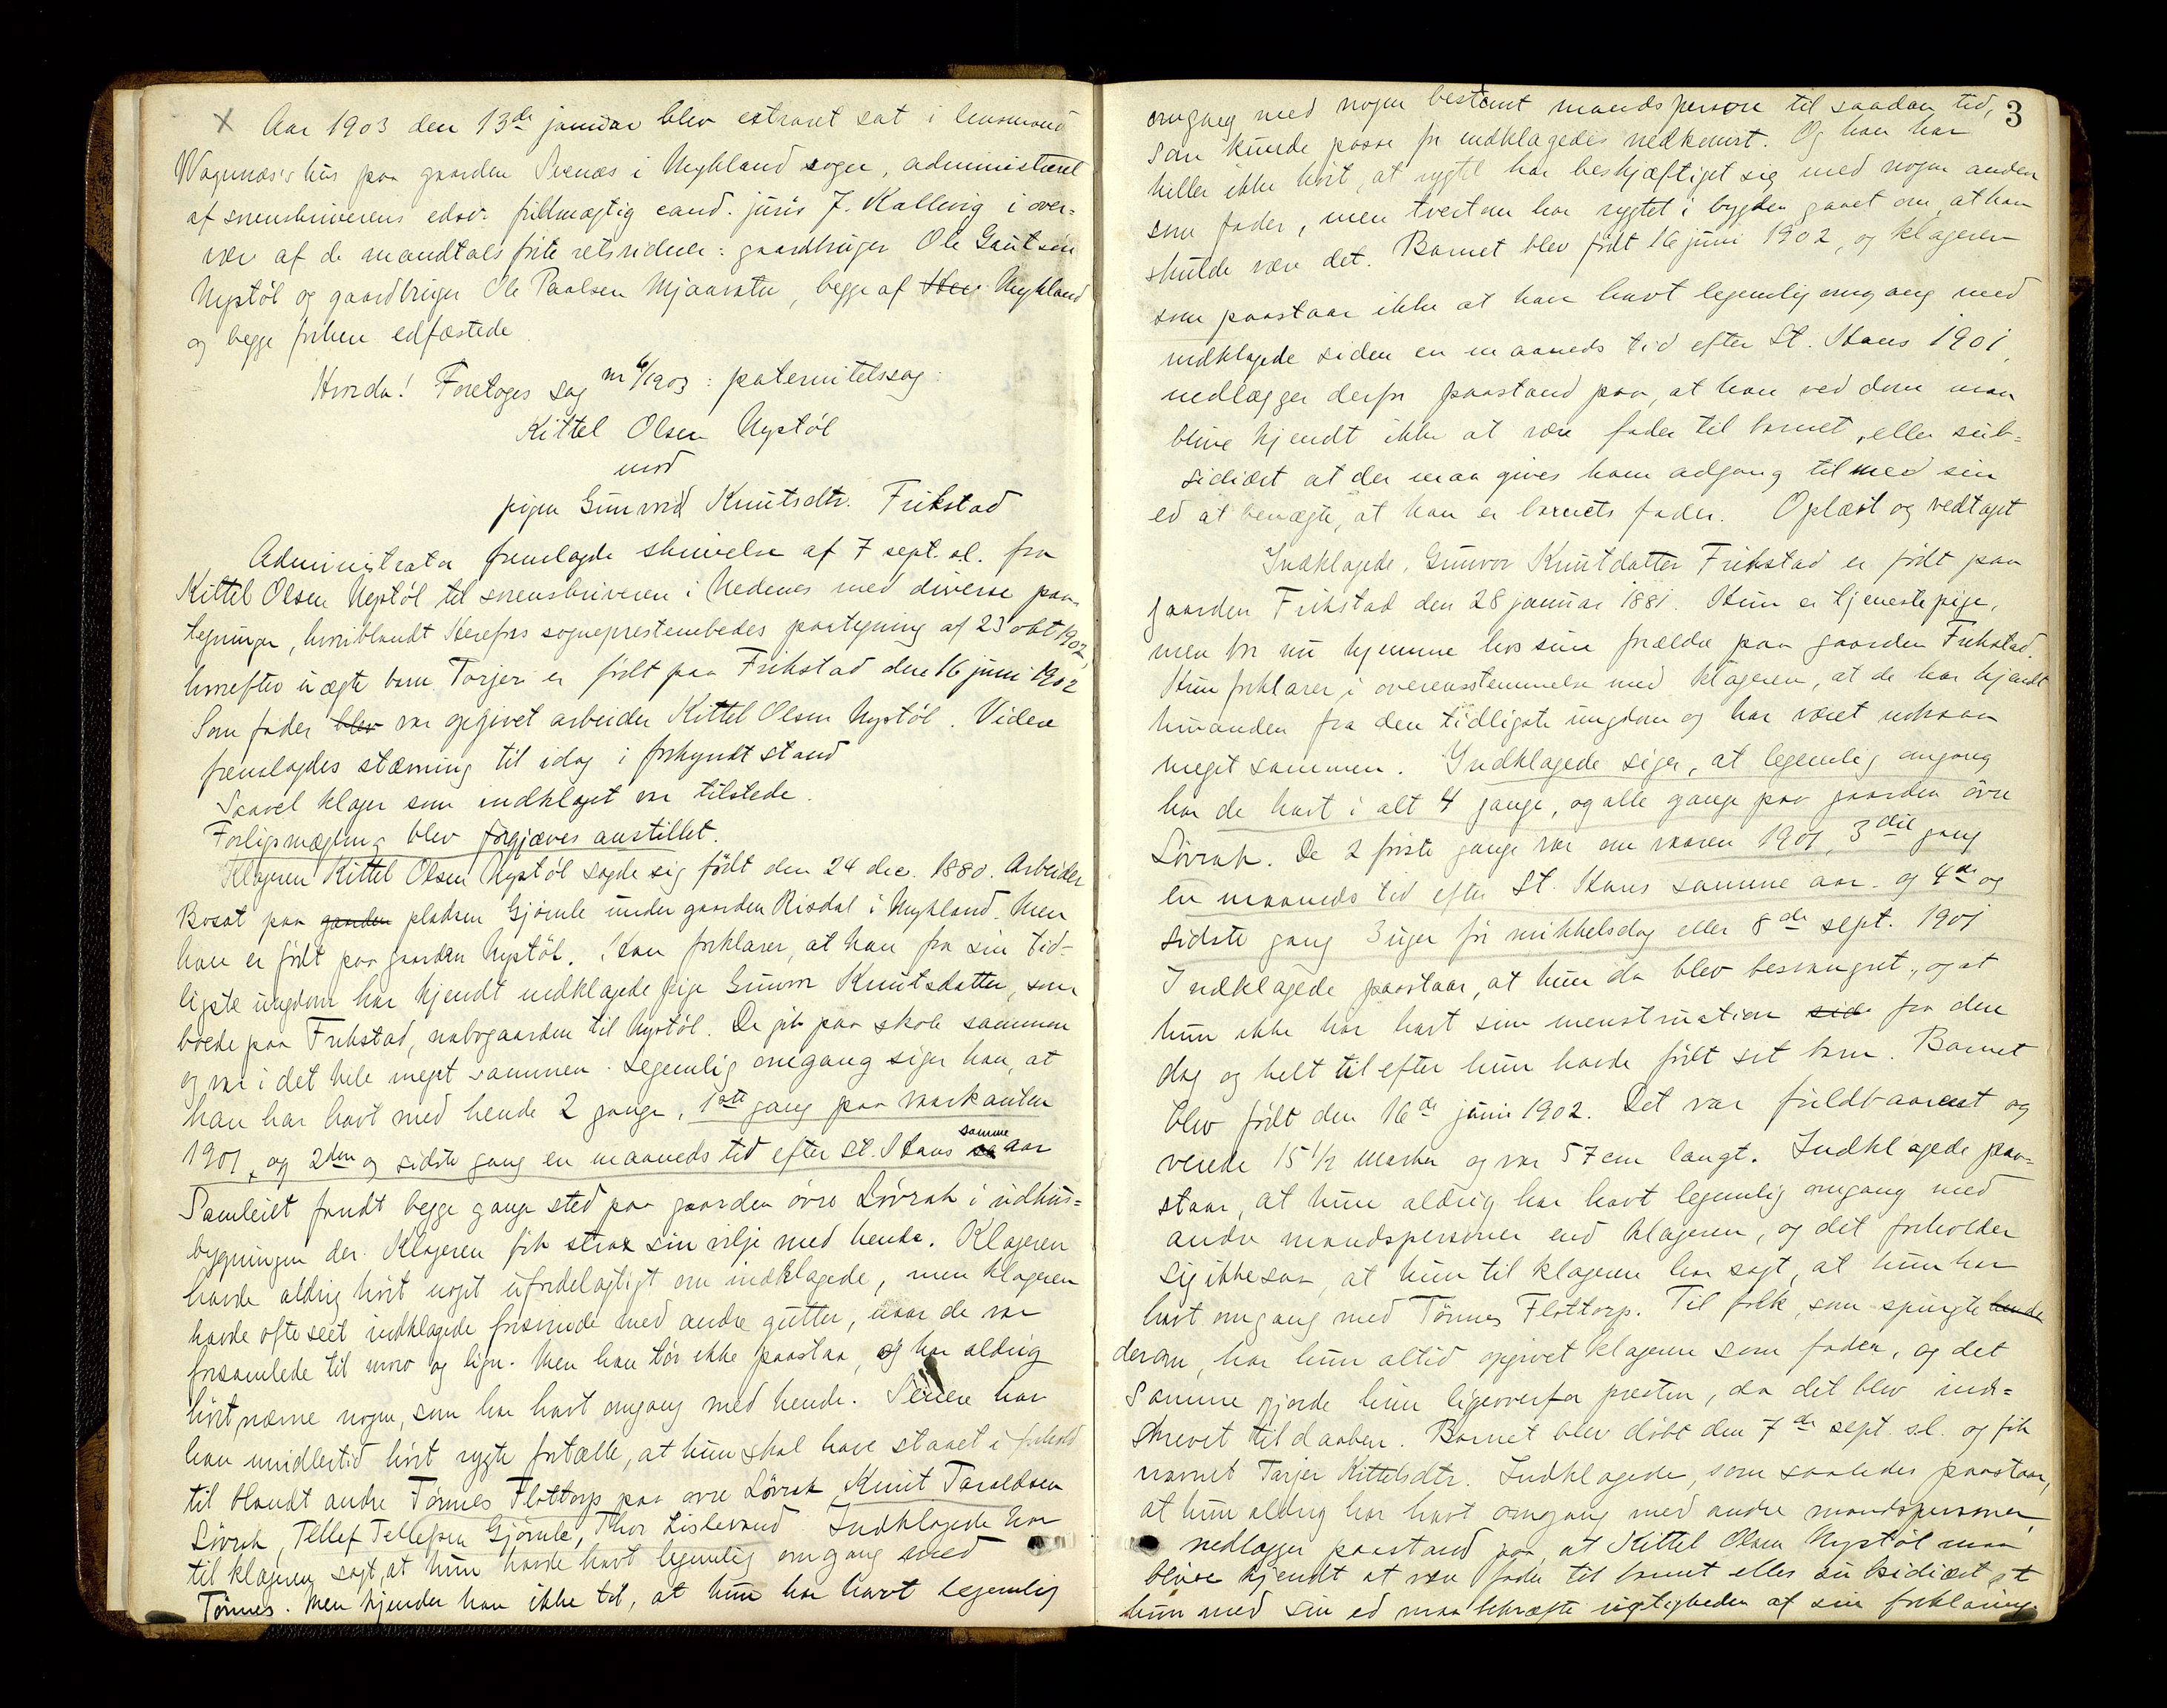 x Aar 1903 den 13de januar blev extraret sat i lensmand
Wagnnæs's hus paa gaarden Svenæs i Mykland sogn, administreret
af sorenskriverens edsv. fuldmægtig cand. juris J. Kallevig i over-
vær af de mandtalsførte retsvidner: gaardbruger Ole Gautsen
Nystøl og gaardbruger Ole Paalsen Mjaavatn, begge af Mykland
og begge forhen edfæstede
Hvorda! Foretoges sag nr 6/1903: paternitetssag:
Kittel Olsen Nystøl
mod
pigen Gunvord Knutsdtr. Frikstad
Administrator fremlagde skrivelse af 7 sept. s.l. fra
Kittel Olsen Nystøl til sorenskriveren i Nedenes med diverse paa-
tegninger, hvoriblandt Herefos sogneprestembedes paategning af 23 okt 1902,
hvorefter uægte barn Torjer er født paa Frikstad den 16 juni 1902
Som fader blev var opgivet arbeider Kittel Olsen Nystøl. Videre
fremlagdes stævning til idag i forkyndt stand
Saavel klager som indklaget var tilstede.
Forligsmægling blev forgjæves anstillet.
Klageren Kittel Olsen Nystøl sagde sig født den 24 dec. 1880. Arbeider
Bosat paa gaarden pladsen Gjømle under gaarden Risdal i Mykland. Men
han er født paa gaarden Nystøl. Han forklarer, at han fra sin tid-
ligste ungdom har kjendt indklagede pige Gunvor Knutsdatter, som
boede paa Frikstad, nabogaarden til Nystøl. De gik paa skole sammen
og var i det hele meget sammen. Legemlig omgang siger han, at
han har havt med hende 2 gange, 1ste gang paa vaarkanten
1901, og 2den og sidste gang en maaneds tid efter St. Hans samme aar
Samleiet fandt begge gange sted paa gaarden øvre Løvrak i udhus-
bygningen der. Klageren fik strax sin vilje med hende. Klageren
havde aldrig hørt noget ufordelagtigt om indklagede, men klageren
havde ofte seet indklagede frisinnede med andre gutter, naar de var
forsamlede til moro og lign. Men han tør ikke paastaa, og har aldrig
hørt nævne nogen, som har havt omgang med hende. Senere har
han imidlertid hørt rygte fortælle, at hun skal have staaet i forhold
til blandt andre Tønnes Flottorp paa øvre Løvrak, Knut Taraldsen
Løvrak, Tellef Tellefsen Gjømle, Thor Lislevand. Indklagede har
til klageren sagt, at hun havde havt legemlig omgang med
Tønnes. Men kjender han ikke til, at hun har havt legemlig
3
omgang med nogen bestemt mandsperson til saadan tid,
som kunde passe for indklagedes nedkomst. Og han har
heller ikke hørt, at rygtet har beskjæftiget sig med nogen anden
som fader, men tvertom har rygtet i bygden gaaet om, at han
skulde være det. Barnet blev født 16 juni 1902, og klageren
som paastaar ikke at have havt legemlig omgang med
indklagede siden en maaneds tid efter St. Hans 1901,
nedlægger derfor paastand paa, at han ved dom maa
blive kjendt ikke at være fader til barnet, eller sub-
sidiært at der maa gives ham adgang til med sin
ed at benægte, at han er barnets fader. Oplæst og vedtaget
Indklagede, Gunvor Knutdatter Frikstad er født paa
gaarden Frikstad den 28 januar 1881. Hun er tjenestepige,
men bor nu hjemme hos sine forældre paa gaarden Frikstad.
Hun forklarer i overensstemmelse med klageren, at de har kjendt
hinanden fra den tidligste ungdom og har været noksaa
meget sammen. Indklagede siger, at legemlig omgang
har de havt i alt 4 gange, og alle gange paa gaarden øvre
Løvrak. De 2 første gange var om vaaren 1901, 3die gang
en maaneds tid efter St. Hans samme aar og 4de og
sidste gang 3 uger før mikkelsdag eller 8de sept. 1901
Indklagede paastaar, at hun da blev besvangret, og at
hun ikke har havt sin menstruation sid fra den
dag og helt til efter hun havde født sit barn. Barnet
blev født den 16de juni 1902. Det var fuldbaarent og
veiede 15 1/2 marker og var 57 cm langt. Indklagede paa-
staar, at hun aldrig har havt legemlig omgang med
andre mandspersoner end klageren, og det forholder
sig ikke saa, at hun til klageren har sagt, at hun har
havt omgang med Tønnes Flottorp. Til folk, som spurgte hende
derom, har hun altid opgivet klageren som fader, og det
samme gjorde hun ligeoverfor presten, da det blev ind-
skrevet til daaben. Barnet blev døbt den 7de sept. s.l. og fik
navnet Tarjer Kittelsdtr. Indklagede, som saaledes paastaar,
at hun aldrig har havt omgang med andre mandspersoner,
nedlægger paastand paa, at Kittel Olsen Nystøl maa
blive kjendt at være fader til barnet eller subsidiært at
hun med sin ed maa bekræfte rigtigheden af sin forklaring.